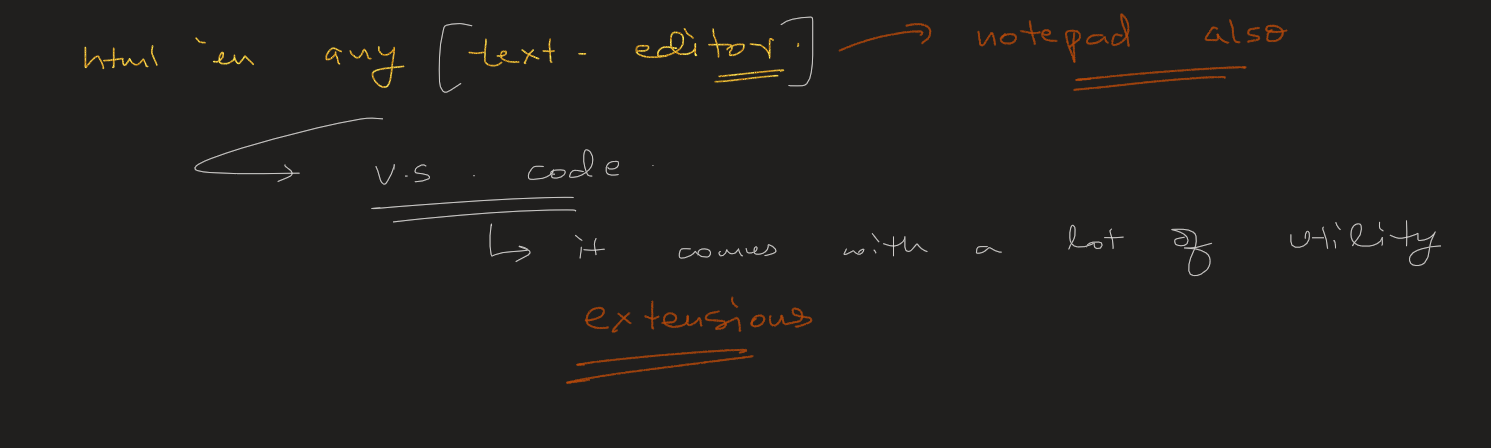 html in any [text - editor.] → notepad also
→ v.s. code.
↳ it comes with a lot of utility
extensions